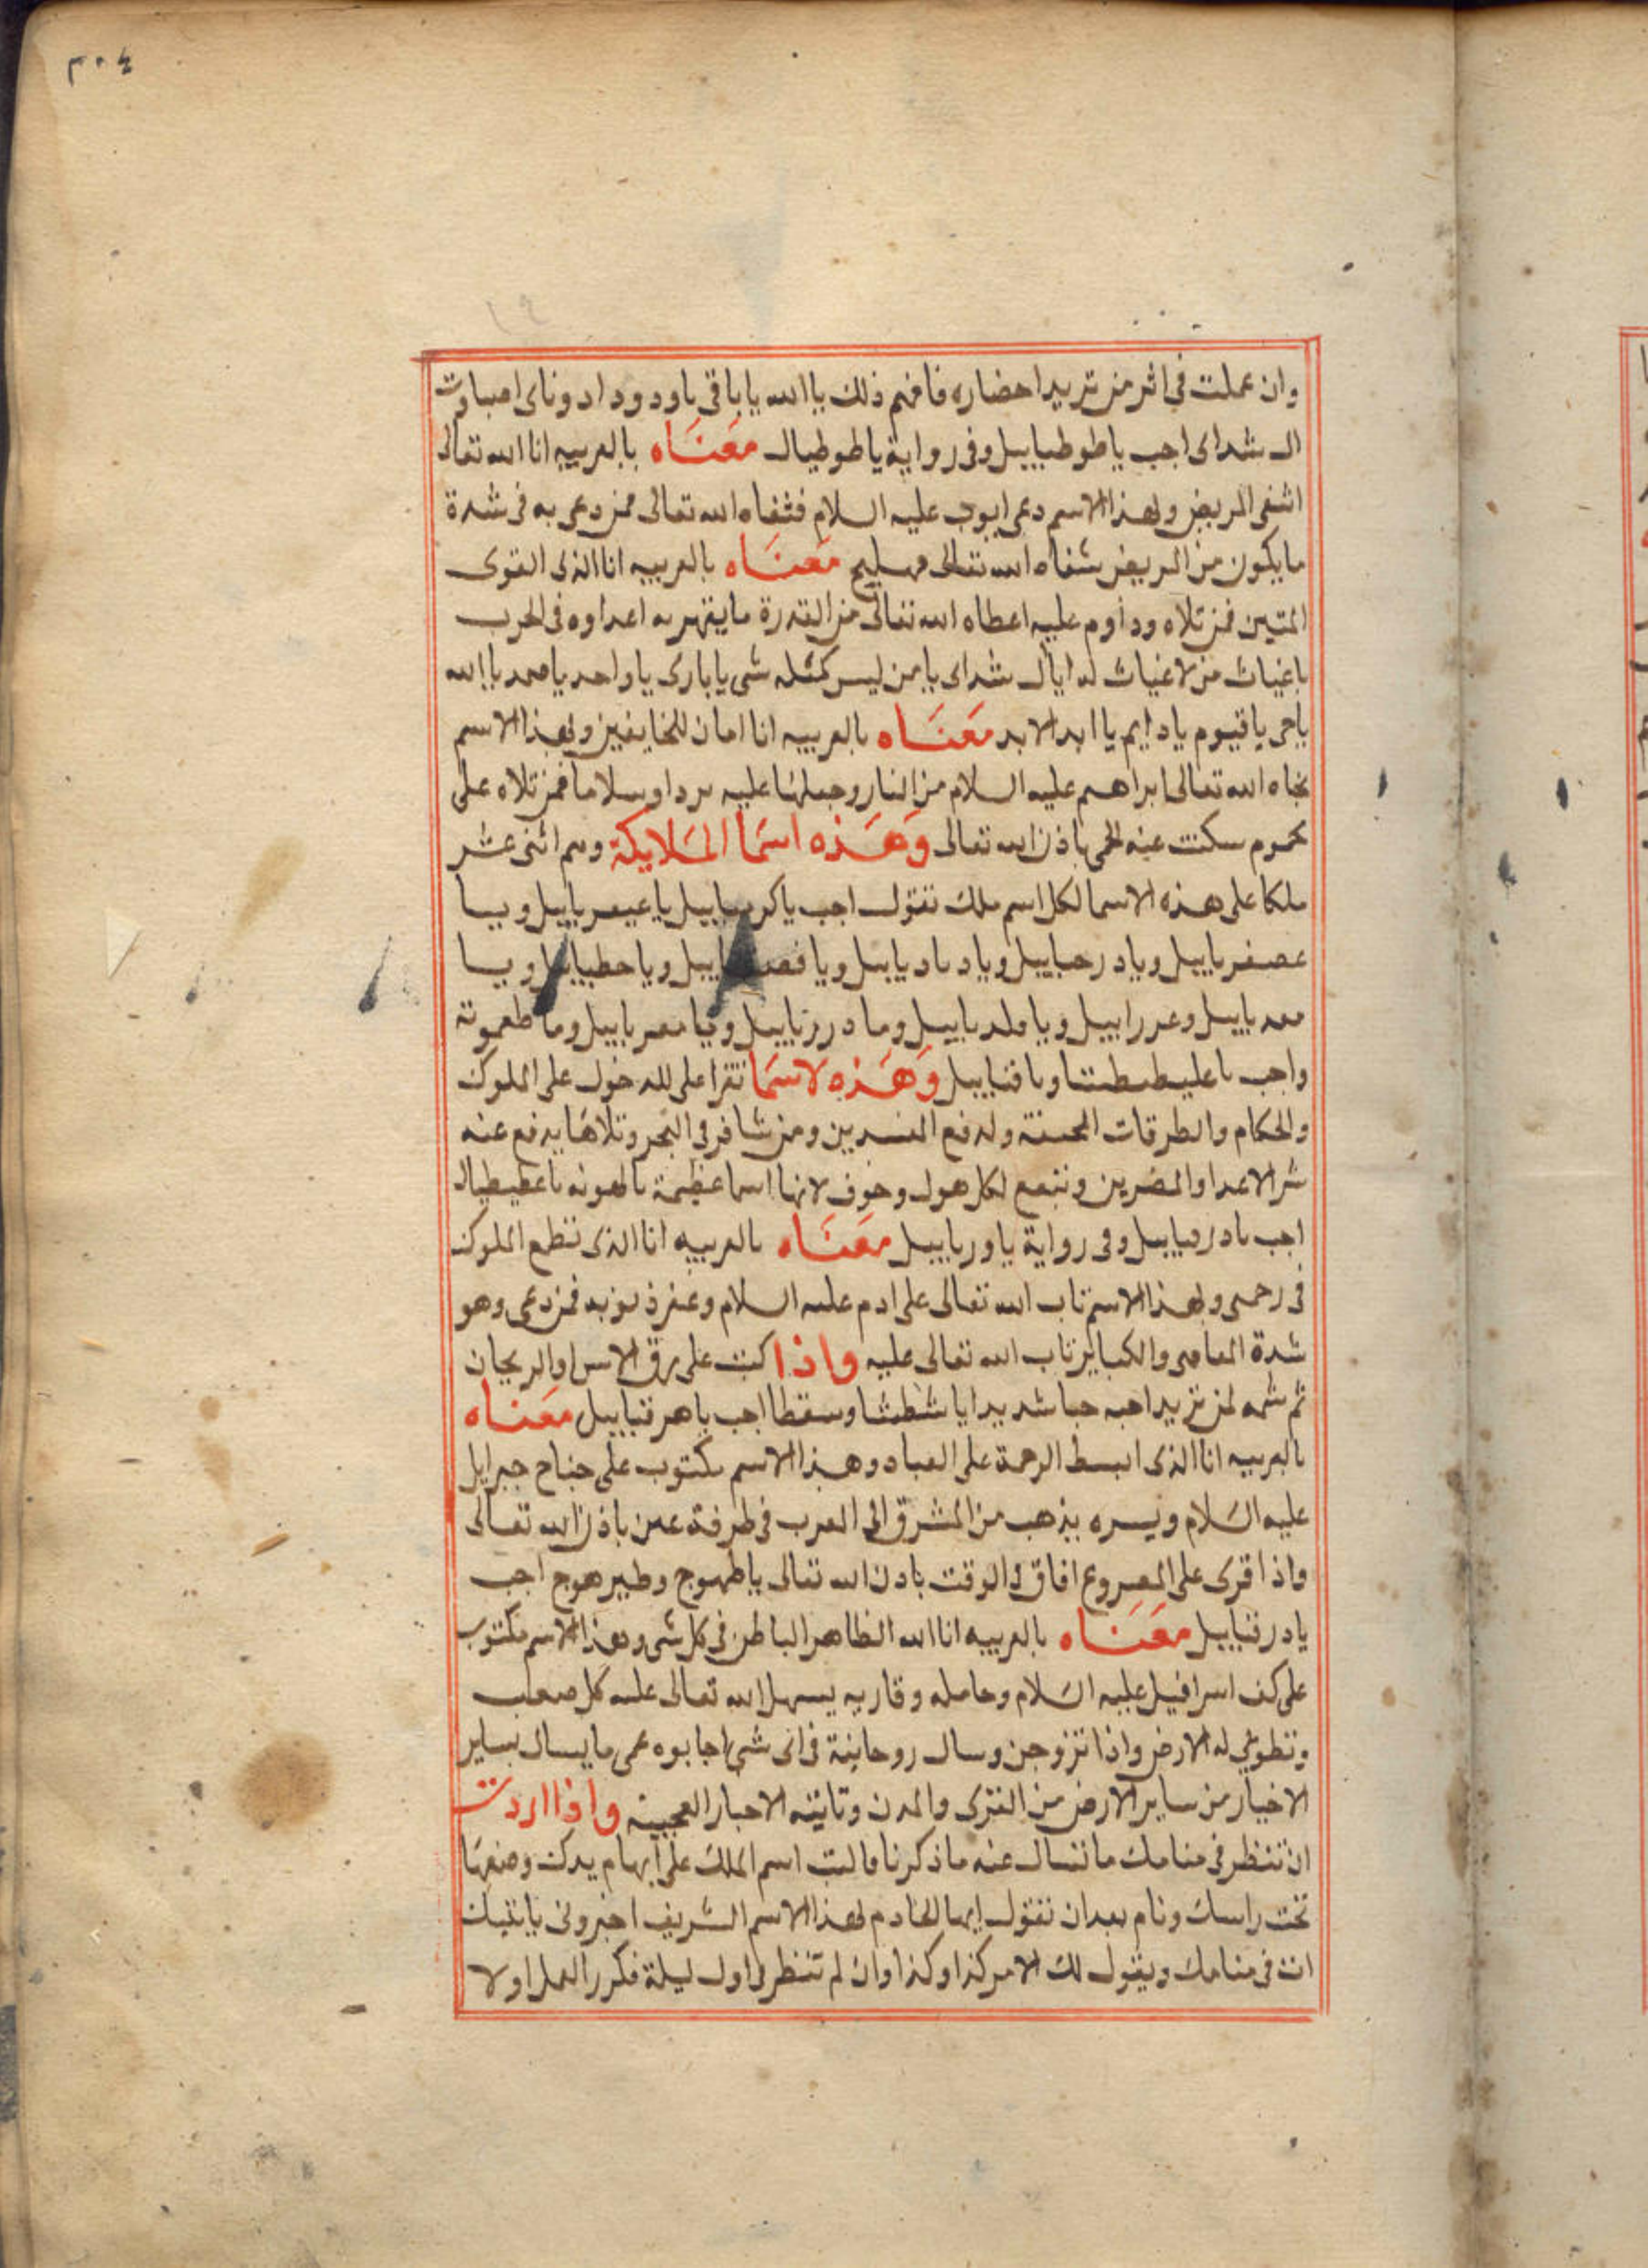 ٣٠٤
وان عملت في اثر من تريد احضاره فافهم ذلك يا الله يا باقي يا ودود ادوناي اصباوت
ال شداي اجب يا طوطياييل وفي رواية يا طوطيال معناه بالعربيه انا الله تعالى
اشفي المريض وبهذا الاسم دعى ايوب عليه السلام فشفاه الله تعالى فمن دعى به في شدة
ما يكون من المريض شفاه الله تعالى مهليج معناه بالعربيه انا الذى القوى
المتين فمن تلاه وداوم عليه اعطاه الله تعالى من القدرة ما يقهر به اعداوه في الحرب
يا غياث من لا غياث له ايال شداى يا من ليس كمثله شى يا بارى يا واحد يا صمد يا الله
يا حى يا قيوم يا دايم يا ابد الابد معناه بالعربيه انا امان للخايفين وبهذا الاسم
نجاه الله تعالى ابراهيم عليه السلام من النار وجعلها عليه بردا وسلاما فمن تلاه على
محموم سكنت عنه الحمى باذن الله تعالى وهذه اسما الملايكة وهم اثنى عشر
ملكا على هذه الاسما لكل اسم ملك تقول اجب يا ويا
عصفرياييل ويا درحياييل ويا ويا ويا حطياييل ويا
واجب وهذه لاسما تقرا على للدخول على الملوك
والحكام والطرقات المخيفة ولدفع المفسدين ومن سافر في البحر وتلاها يدفع عنه
شر الاعدا والمضرين وتنفع لكل هول وخوف لانها اسما عظيمة
اجب وفى رواية يا ورياييل معناه بالعربيه انا الذى تطمع الملوك
فى رحمتى وبهذا الاسم تاب الله تعالى على ادم عليه السلام وغفر ذنوبه فمن دعى وهو
شدة المعاصى والكباير تاب الله تعالى عليه واذا كتب على ورق الاس او الريحان
ثم شمه لمن تريد احبه حبا شديدا يا شطشا وسقطا اجب يا هرقياييل معناه
بالعربيه انا الذى ابسط الرحمة على العباد وهذا الاسم مكتوب على جناح جبرايل
عليه السلام ويسره يذهب من المشرق الى المغرب في طرفة عين باذن الله تعالى
واذا قرى على المصروع افاق فى الوقت باذن الله تعالى يا طهوج وطيرهوج اجب
يا درقياييل معناه بالعربيه انا الله الظاهر الباطن فى كل شى وهذا الاسم مكتوب
على كف اسرافيل عليه السلام وحامله وقاريه يسهل الله تعالى عليه كل صعب
وتطوى له الارض واذا تزوجن وسال روحانية فى اى شى اجابوه عن ما يسال بساير
الاخبار من ساير الارض من القرى والمدن وتاتيه الاخبار العجيبه واذا اردت
ان تنظر فى منامك ما تسال عنه ما ذكرنا فاكتب اسم الملك على ابهام يدك وضعها
تحت راسك ونام بعد ان تقول ايها الخادم لهذا الاسم الشريف اخبرونى ياتيك
ات فى منامك ويقول لك الامر كذا وكذا وان لم تنظر فى اول ليلة فكرر العمل اولا